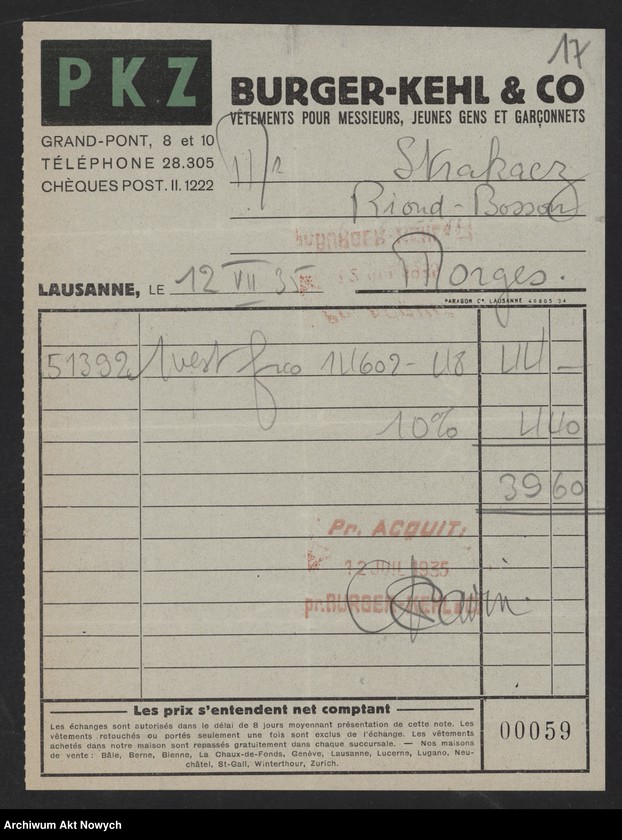 17
PKZ
BURGER-KEHL & CO
VÊTEMENTS POUR MESSIEURS, JEUNES GENS ET GARÇONNETS
GRAND-PONT, 8 et 10
TÉLÉPHONE 28.305
CHÈQUES POST. II. 1222
Mr Strakacz
Riond-Bosson
Morges.
LAUSANNE, LE 12 VII 35
PARAGON Co. LAUSANNE 40805 34
51392 1 vest fco 14602- 48 44 —
10% 4 40
39 60
Pr. ACQUIT:
12 JUIL 1935
pr. BURGER-KEHL & Co
Les prix s'entendent net comptant
Les échanges sont autorisés dans le délai de 8 jours moyennant présentation de cette note. Les
vêtements retouchés ou portés seulement une fois sont exclus de l'échange. Les vêtements
achetés dans notre maison sont repassés gratuitement dans chaque succursale. — Nos maisons
de vente : Bâle, Berne, Bienne, La Chaux-de-Fonds, Genève, Lausanne, Lucerne, Lugano, Neu-
châtel, St-Gall, Winterthour, Zurich.
00059
Archiwum Akt Nowych